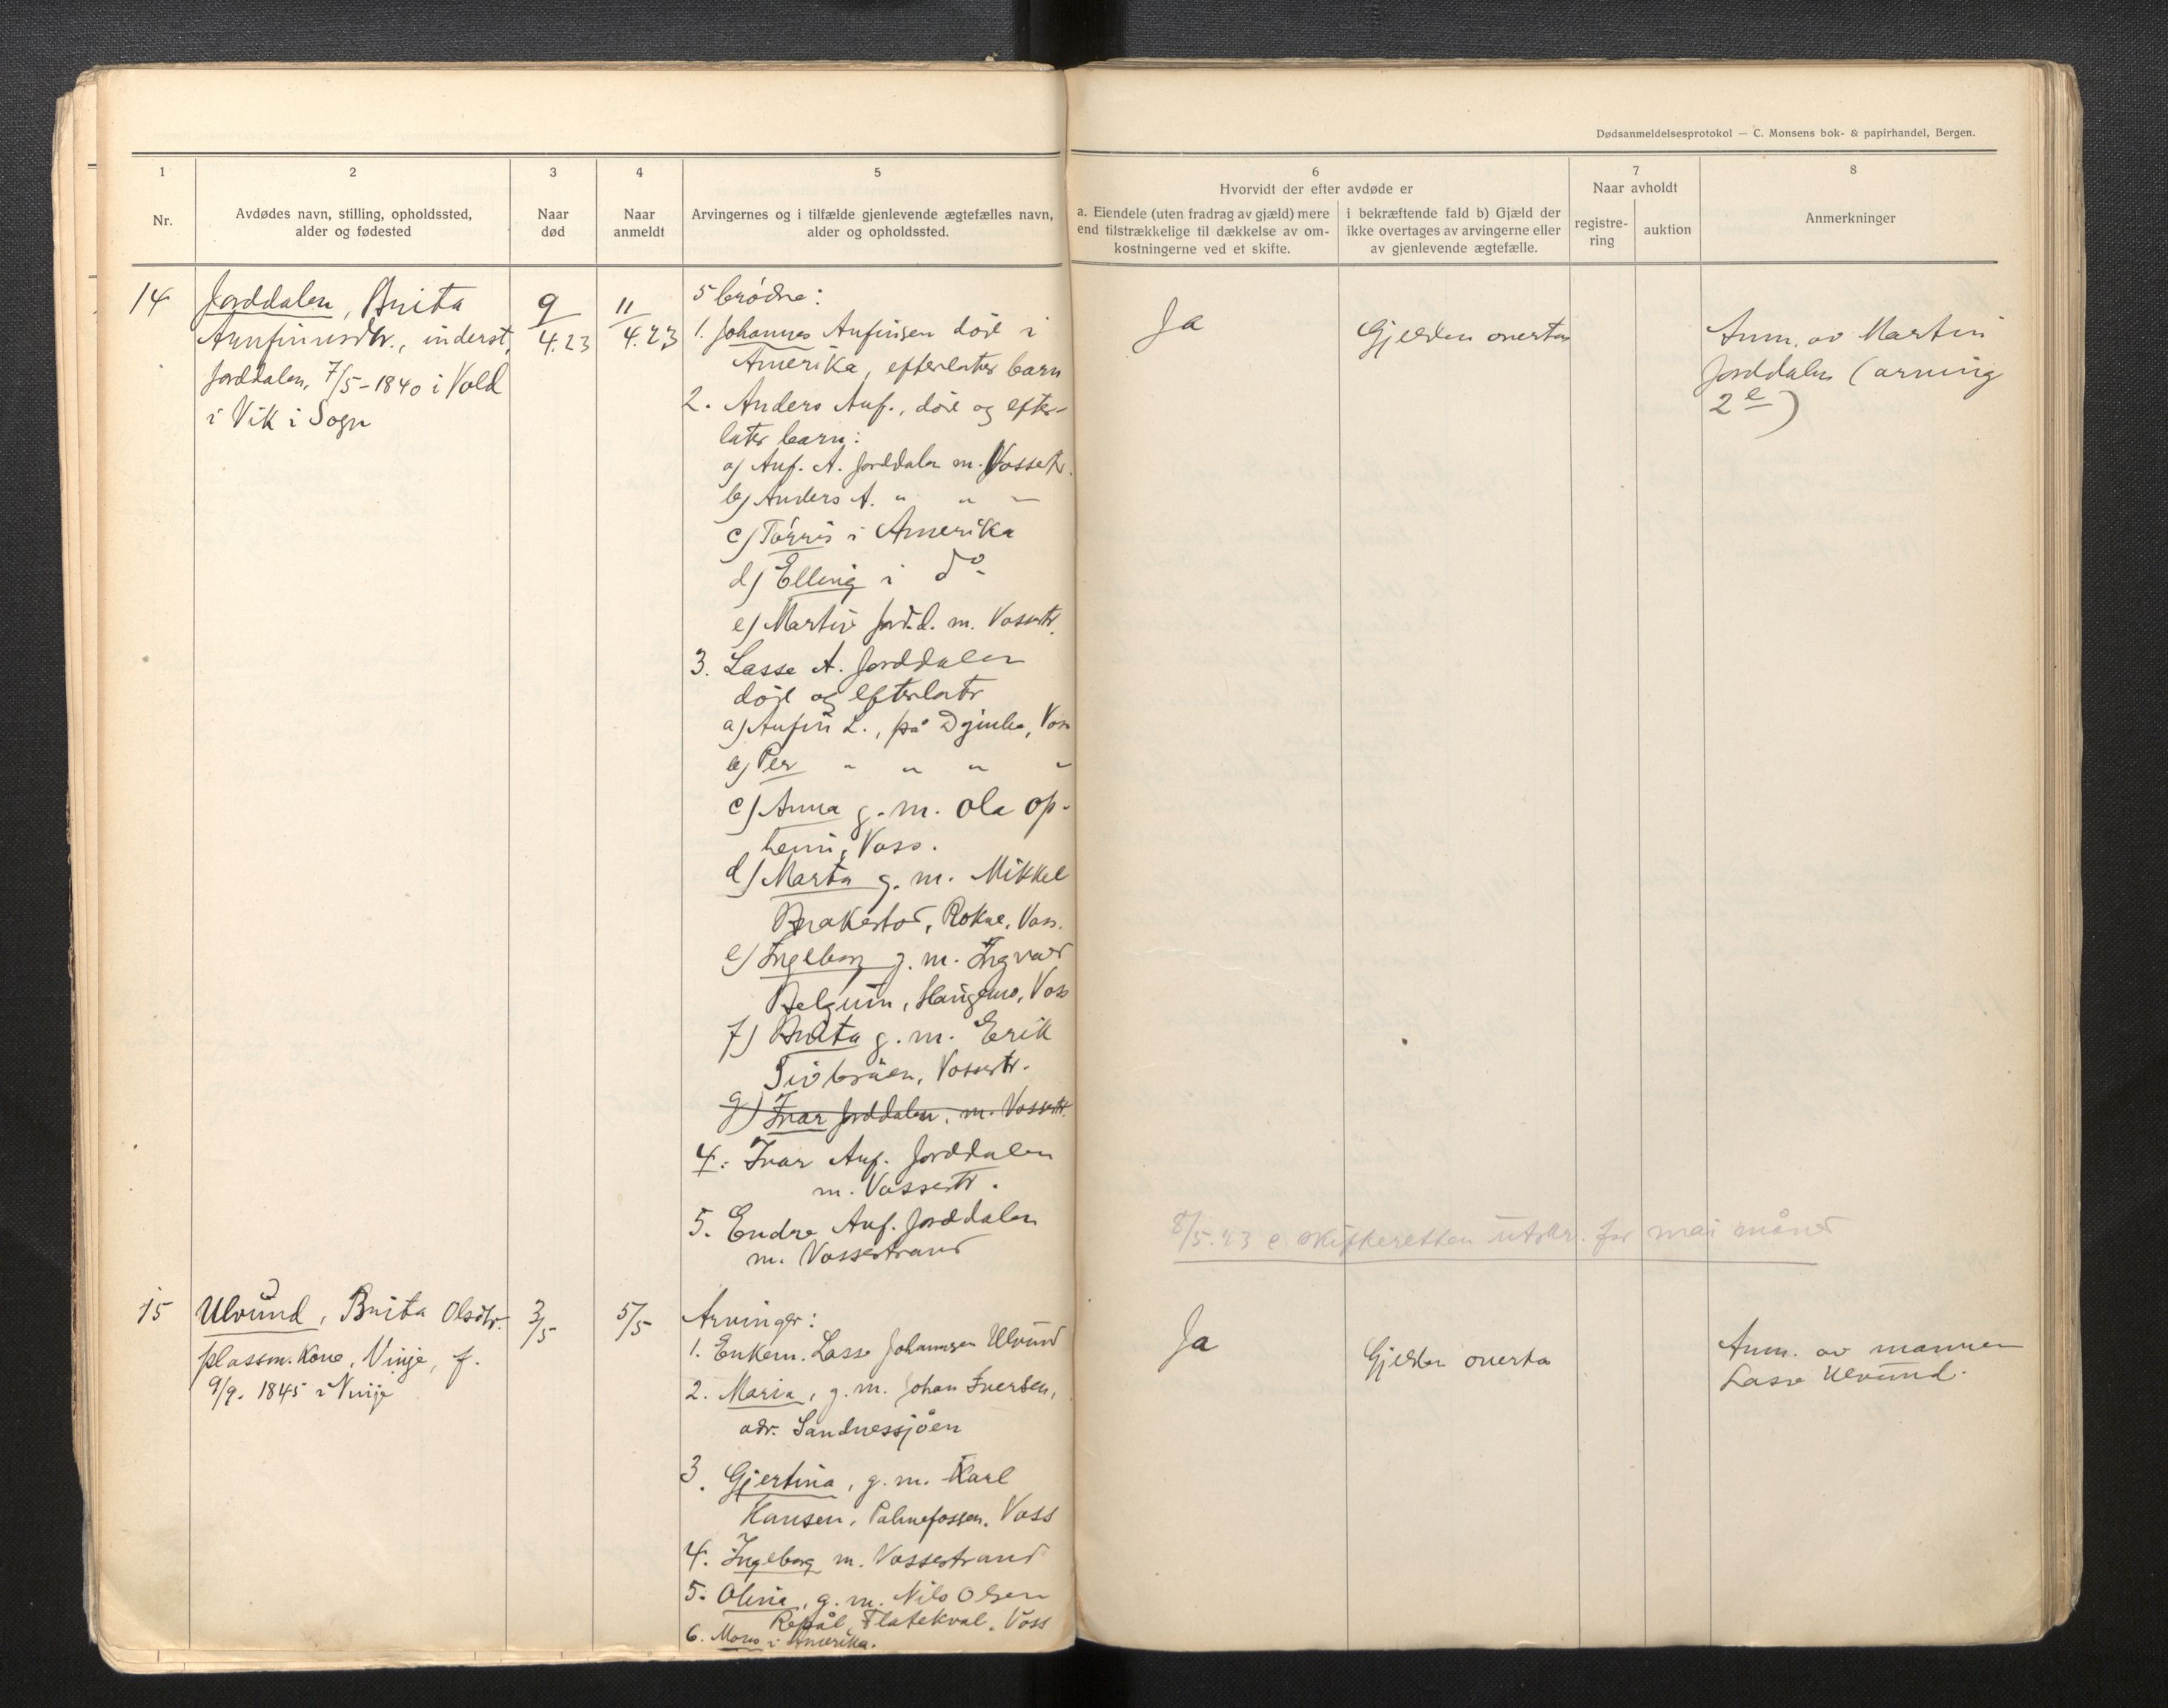 Dødsanmeldelsesprotokol — C. Monsens bok- & papirhandel, Bergen.
1
Nr.
2
Avdødes navn, stilling, opholdssted,
alder og fødested
3
Naar
død
4
Naar
anmeldt
5
Arvingernes og i tilfælde gjenlevende ægtefælles navn,
alder og opholdssted.
6
Hvorvidt der efter avdøde er
a. Eiendele (uten fradrag av gjæld) mere
end tilstrækkelige til dækkelse av om-
kostningerne ved et skifte.
i bekræftende fald b) Gjæld der
ikke overtages av arvingerne eller
av gjenlevende ægtefælle.
7
Naar avholdt
registre-
ring
auktion
8
Anmerkninger
14
Jorddalen, Brita
Arnfinnsdtr., inderst,
Jorddalen, 7/5-1840 i Vold
i Vik i Sogn
9
4.23
11
4.23
5 brødre:
1. Johannes Anfinsen død i
Amerika, efterlater barn
2. Anders Anf., død og efter-
later barn:
a) Anf. A. Jorddalen m. Vossestr.
b) Anders A. " " —
c) Torris i Amerika
d) Elling i do
e) Martin Jordd. m. Vossestr.
3. Lasse A. Jorddalen
død og efterlater
a) Anfin L., på Dyinhe, Voss
b) Per " " " "
c) Anna g. m. Ola Op-
heim, Voss.
d) Marta g. m. Mikkel
Brakestad, Rokne, Voss.
e) Ingeborg g. m. Ingvar
Belgum, Haugamo, Voss
f) Brita g. m. Erik
Tvibråen, Vossestr.
g) Ivar Jorddalen, m. Vossestr.
4. Ivar Anf. Jorddalen
m. Vossestr.
5. Endre Anf. Jorddalen
m. Vossestrand
Ja
Gjelden overtas
Anm. av Martin
Jorddalen (arving
2 e)
8/5.23 e. skifteretten utskr. for mai måned
15
Ulvund, Brita Olsdtr.
plassm. kone, Vinje, f.
9/9. 1845 i Vinje
3/5
5/5
Arvinger:
1. Enkem. Lasse Johannsen Ulvund
2. Maria, g. m. Johan Iversen,
adr. Sandnessjøen
3. Gjertina, g. m. Karl
Hansen, Palmefossen, Voss
4. Ingeborg m. Vossestrand
5. Olina, g. m. Nils Olsen
Repål, Flatekval, Voss
6. Mons i Amerika.
Ja
Gjelden overtas
Anm. av mannen
Lasse Ulvund.